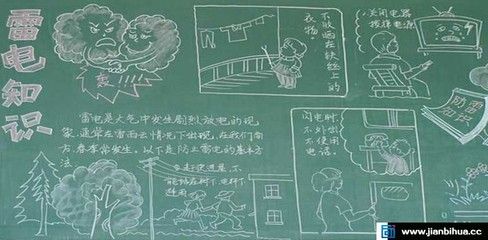 雷电知识
轰
不收晒在铁丝上的
衣物。
关闭电器
拔掉电源
防雷
知识
雷电是大气中发生剧烈放电的现
象,通常在雷雨云情况下出现,在我们南
方,春季常发生。以下是防止雷电的基本方
法
闪电时
不外出
不使用
电话。
能站在树下、电杆下
www.jianbihua.cc